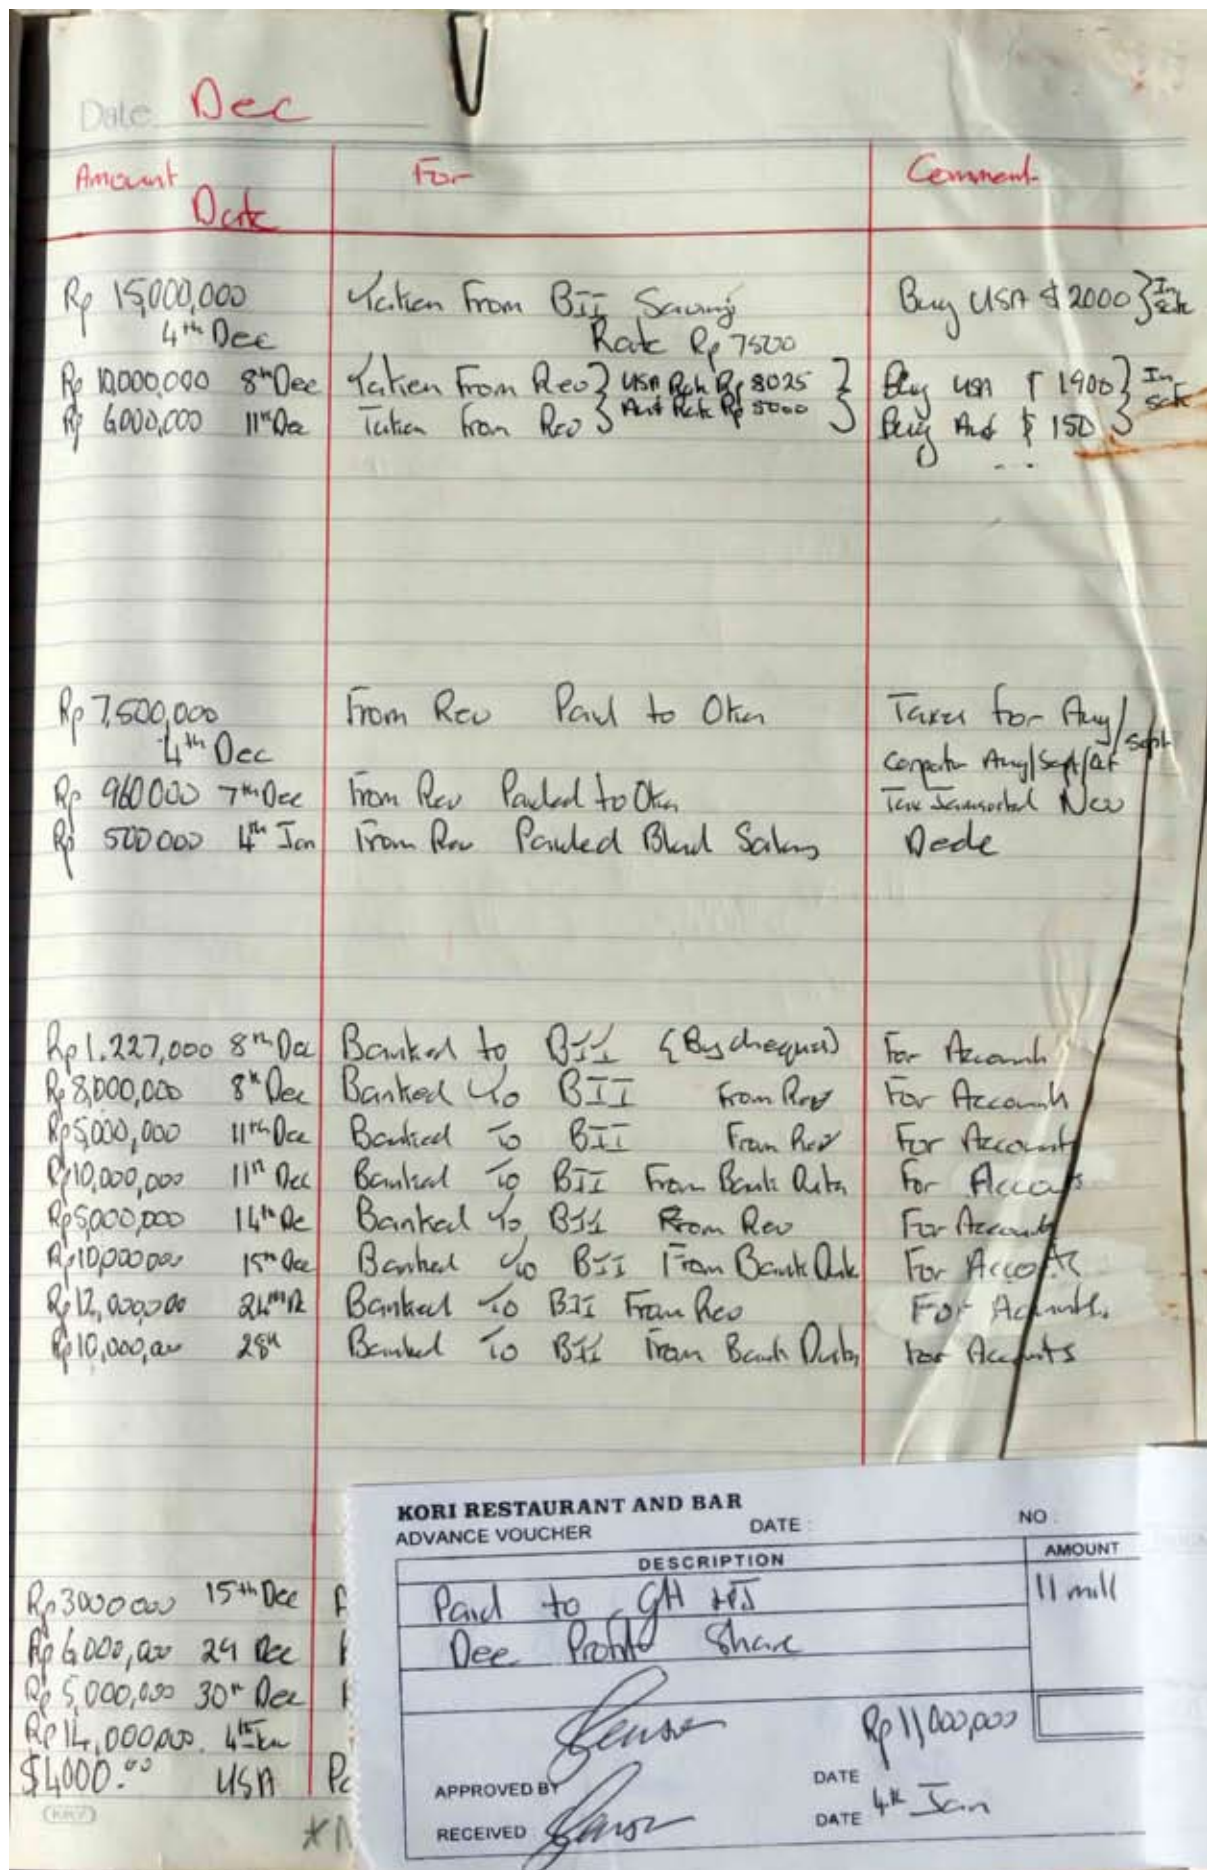 Date Dec
Amount Date For Comment
Rp 15,000,000 Taken From BII Saving Buy USA $ 2000 } In safe
4th Dec Rate Rp 7500
Rp 10,000,000 8th Dec Taken From Rev } USA Rate Rp 8025 } Buy USA $ 1900 } In safe
Rp 6000,000 11th Dec Taken From Rev } Aus Rate Rp 5000 } Buy Aus $ 150 }
Rp 7,500,000 From Rev Paid to Oka Taxes for Aug/Sept
4th Dec Aug/Sept/Oct
Rp 960000 7th Dec From Rev Paided to Oka Tax Nov
Rp 500000 4th Jan From Rev Paided Dede
Rp 1.227,000 8th Dec Banked to BII {By cheques) For Accounts
Rp 8,000,000 8th Dec Banked To BII From Rev For Accounts
Rp 5,000,000 11th Dec Banked To BII From Rev For Accounts
Rp 10,000,000 11th Dec Banked To BII From Bank For Accou
Rp 5,000,000 14th De Banked To BII From Rev For Accounts
Rp 10,000000 15th Dec Banked To BII From Bank For Acco
Rp 12,000,000 24th Banked To BII From Rev For Accounts.
Rp 10,000,000 28th Banked To BII From Bank for Accounts
Rp 3000000 15th Dec
Rp 6,000,000 24 Dec
Rp 5,000,000 30th Dec
Rp 14,000,000. 4th Jan
$4000.00 USA
KORI RESTAURANT AND BAR
ADVANCE VOUCHER DATE : NO :
DESCRIPTION AMOUNT
Paid to GH 11 mill
Dec Profit Share
Rp 11,000,000
APPROVED BY DATE
RECEIVED DATE 4th Jan